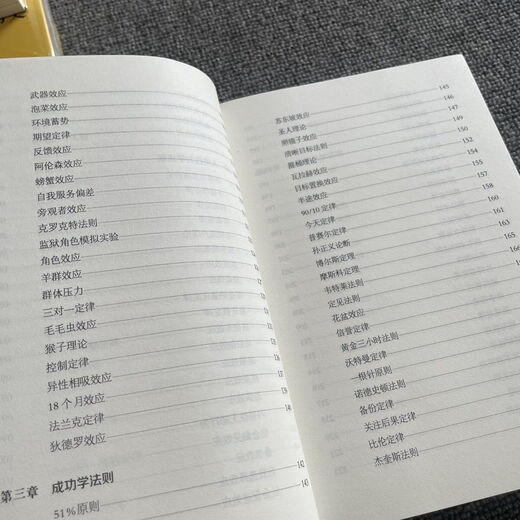 武器效应
泡菜效应
环境蓄势
期望定律
反馈效应
阿伦森效应
螃蟹效应
自我服务偏差
旁观者效应
克罗克特法则
监狱角色模拟实验
角色效应
羊群效应
群体压力
三对一定律
毛毛虫效应
猴子理论
控制定律
异性相吸效应
18个月效应
法兰克定律
狄德罗效应
第三章 成功学法则 142
51%原则 143
苏东坡效应 145
圣人理论 146
照镜子效应 147
清晰目标法则 149
推桶理论 150
瓦拉赫效应 152
目标置换效应 154
半途效应 155
90/10定律 157
今天定律 158
普赛尔定律 160
孙正义论断 161
博尔斯定理 163
摩斯科定理 165
韦特莱法则
定见法则
花盆效应
信誉定律
黄金三小时法则
沃特曼定律
一根针原则
诺德史顿法则
备份定律
关注后果定律
比伦定律
杰奎斯法则